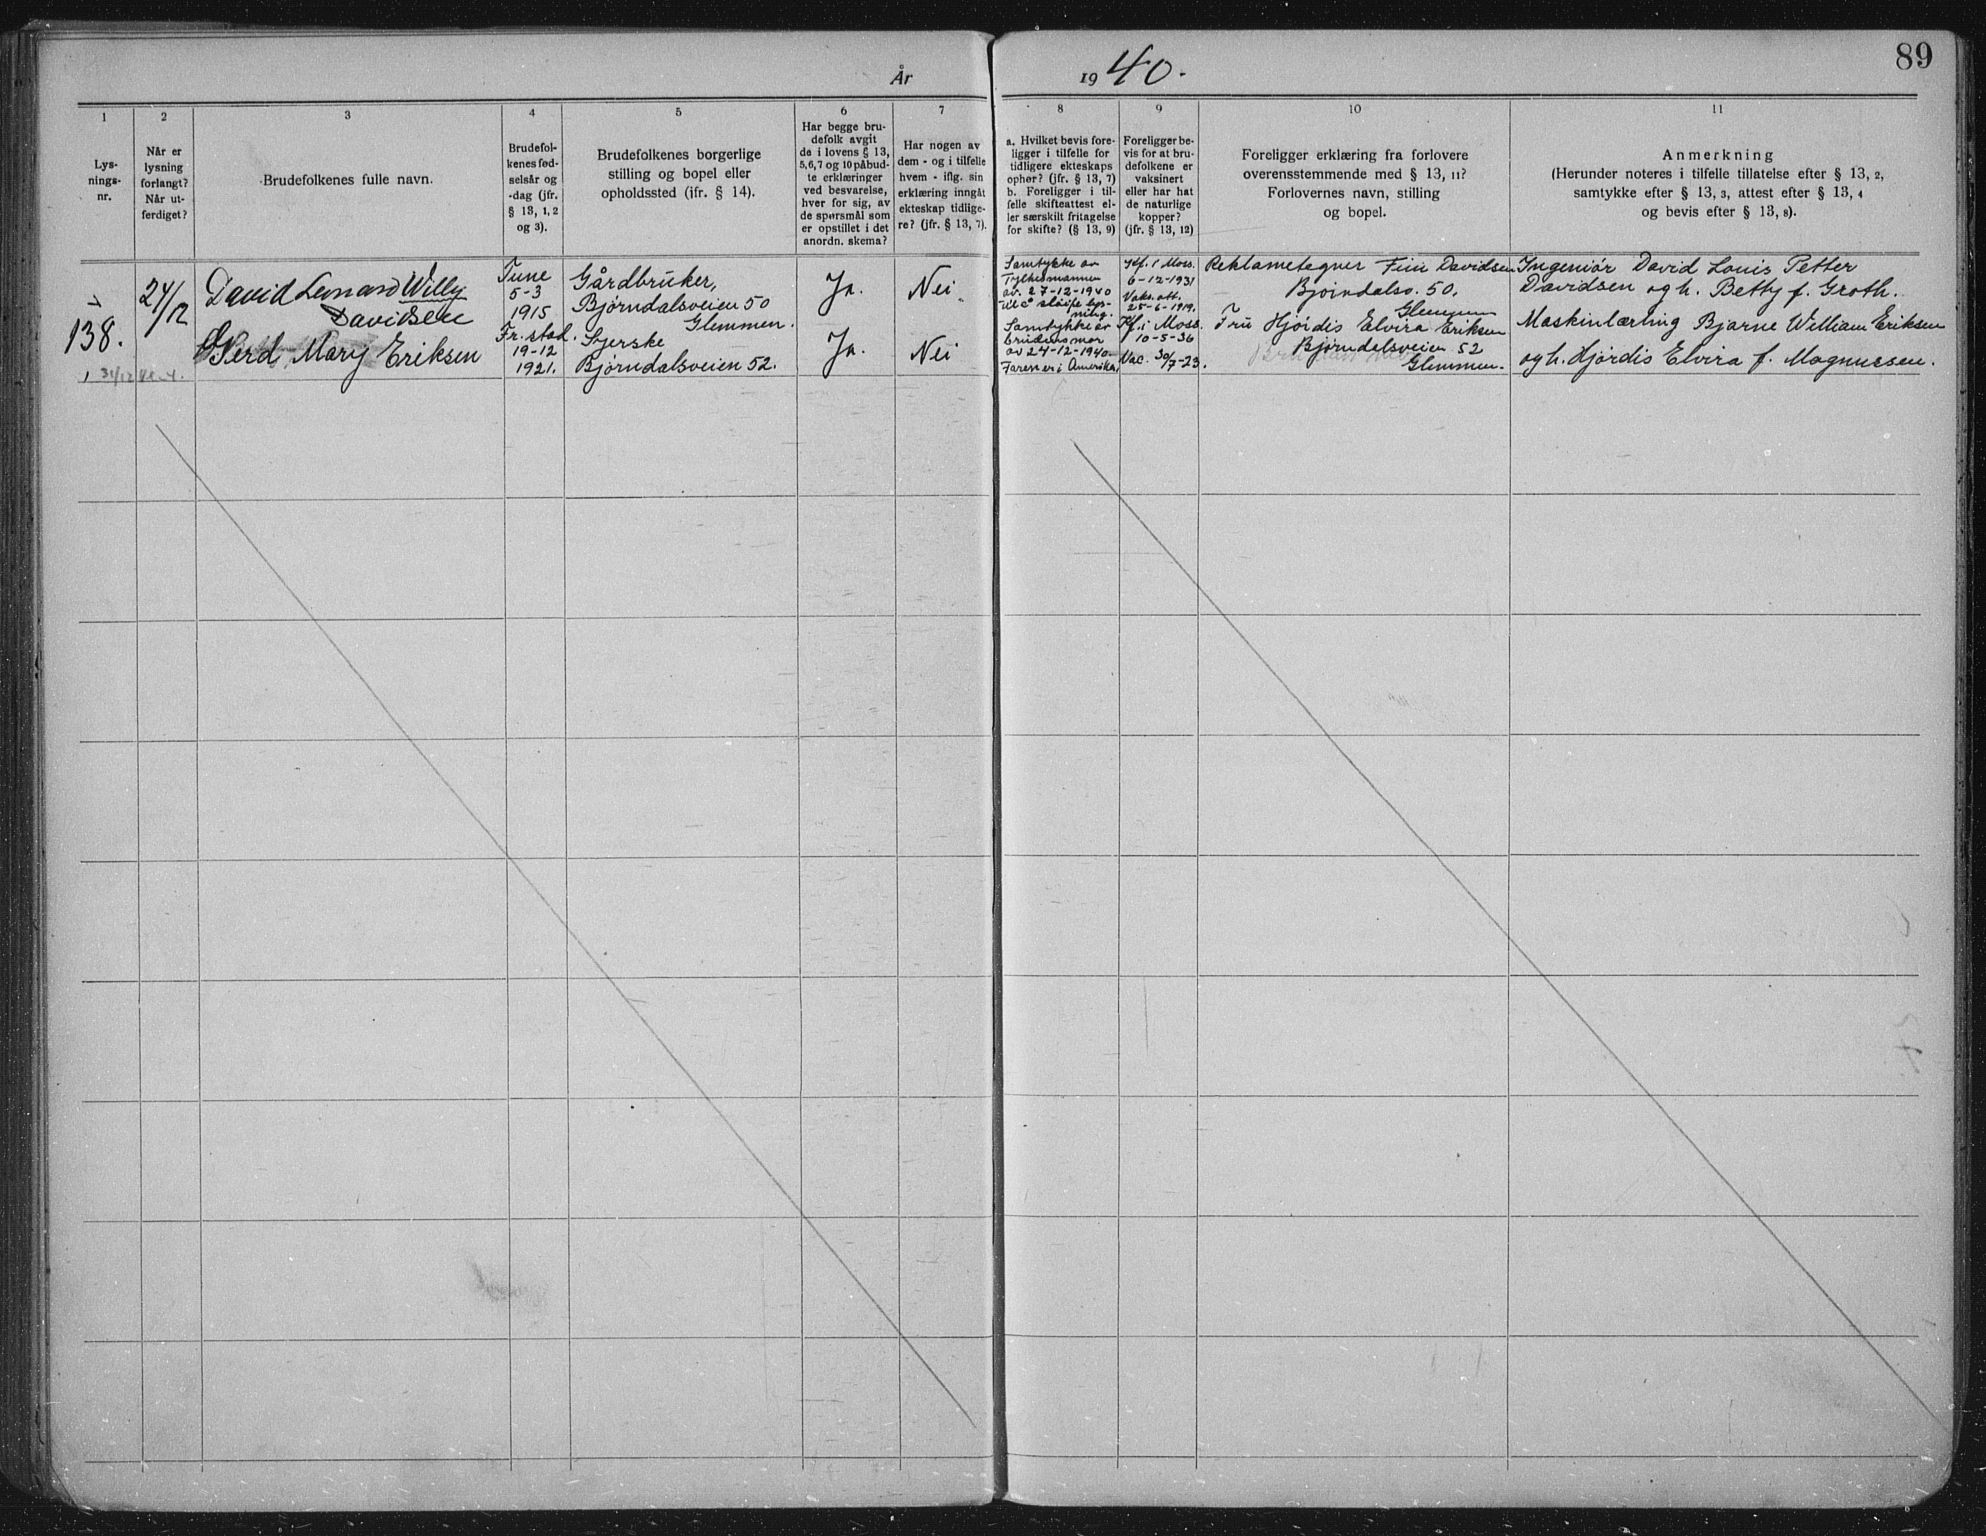 År 1940.
89
1
2
3
4
5
6
7
8
9
10
11
Lys-
nings-
nr.
Når er
lysning
forlangt?
Når ut-
ferdiget?
Brudefolkenes fulle navn.
Brudefol-
kenes fød-
selsår og
-dag (jfr.
§ 13, 1, 2
og 3).
Brudefolkenes borgerlige
stilling og bopel eller
opholdssted (ifr. § 14).
Har begge bru-
defolk avgit
de i lovens § 13,
5,6,7 og 10 påbud-
te erklæringer
ved besvarelse,
hver for sig, av
de spørsmål som
er opstillet i det
anordn. skema?
Har nogen av
dem - og i tilfelle
hvem - iflg. sin
erklæring inngåt
ekteskap tidlige-
re? (jfr. § 13, 7).
a. Hvilket bevis fore-
ligger i tilfelle for
tidligere ekteskaps
ophør? (jfr. § 13, 7)
b. Foreligger i til-
felle skifteattest el-
ler særskilt fritagelse
for skifte? (§ 13, 9)
Foreligger be-
vis for at bru-
defolkene er
vaksinert
eller har hat
de naturlige
kopper?
(jfr. § 13, 12)
Foreligger erklæring fra forlovere
overensstemmende med § 13, 11?
Forlovernes navn, stilling
og bopel.
Anmerkning
(Herunder noteres i tilfelle tillatelse efter § 13, 2,
samtykke efter § 13, 3, attest efter § 13, 4
og bevis efter § 13, 8).
138.
24/12
David Leonard Willy
Davidsen
Tune
5-3
1915
Gårdbruker,
Bjørndalsveien 50
Glemmen.
Ja.
Nei
Samtykke av
Fylkesmannen
av 27-12-1940
til å sløife lys-
ning.
Kf. i Moss.
6-12-1931
Vaks. att.
25-6-1919.
Reklametegner Finn Davidsen
Bjørndalsv. 50,
Glemmen
Ingeniør David Louis Petter
Davidsen og h. Betty f. Groth.
Gerd Mary Eriksen
Fr. stad.
19-12
1921.
Syerske
Bjørndalsveien 52.
Ja.
Nei
Samtykke av
brudens mor
av 24-12-1940.
Faren er i Amerika.
Kf. i Moss.
10-5-36
Vac. 30/7-23.
Fru Hjørdis Elvira Eriksen
Bjørndalsveien 52
Glemmen.
Maskinlærling Bjarne William Eriksen
og h. Hjørdis Elvira f. Magnussen.